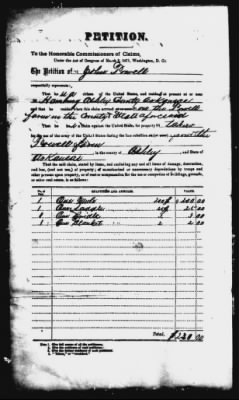 PETITION.
To the Honorable Commissioners of Claims,
Under the act of Congress of March 3, 1871, Washington, D. C.
The Petition of John Powell
respectfully represents:
That he citizen of the United States, and resides at present at or
Hamburg Ashley County Arkansas
and when this claim accrued on the Powell
farm in the County & State aforesaid
That he has a claim against the United States for property taken
for the use of the army of the United States during the late rebellion at
Powell farm in the county of Ashley and State of
Arkansas
That the said claim, stated by items, and excluding any and all items of damage, destruction,
and loss, (and not use,) of property; of unauthorized or unnecessary depredations by troops and
other persons upon property, or of rent or compensation for the use or occupation of buildings, grounds,
or other real estate, is as follows:
QUANTITIES AND ARTICLES.
1 One Mule 200 $ 200 00
2 One Saddle 25 00
3 One Bridle 3 3 00
4 One Blanket 2 2 00
Total,